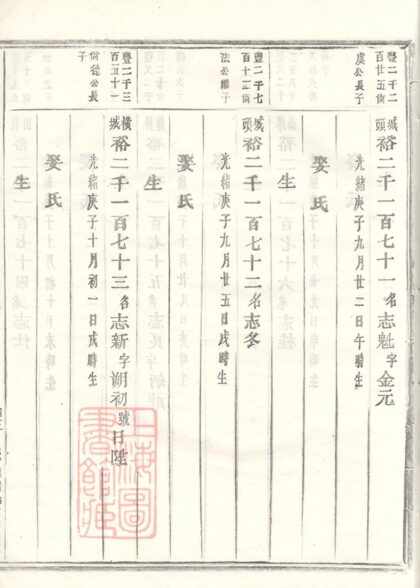 豐二千二
百廿五尙
虞公長子
城頭 裕二千一百七十一 名志魁字金元
光緒庚子九月廿二日午時生
娶氏
生
豐二千七
百三十二
法公繼子
城頭 裕二千一百七十二 名志冬
光緒庚子九月廿五日戌時生
娶氏
生
豐二千三
百五十一
尙德公長
子
橫城 裕二千一百七十三 名志新字朔初號日陞
光緒庚子十月初一日戌時生
娶氏
生
上海圖
書館藏